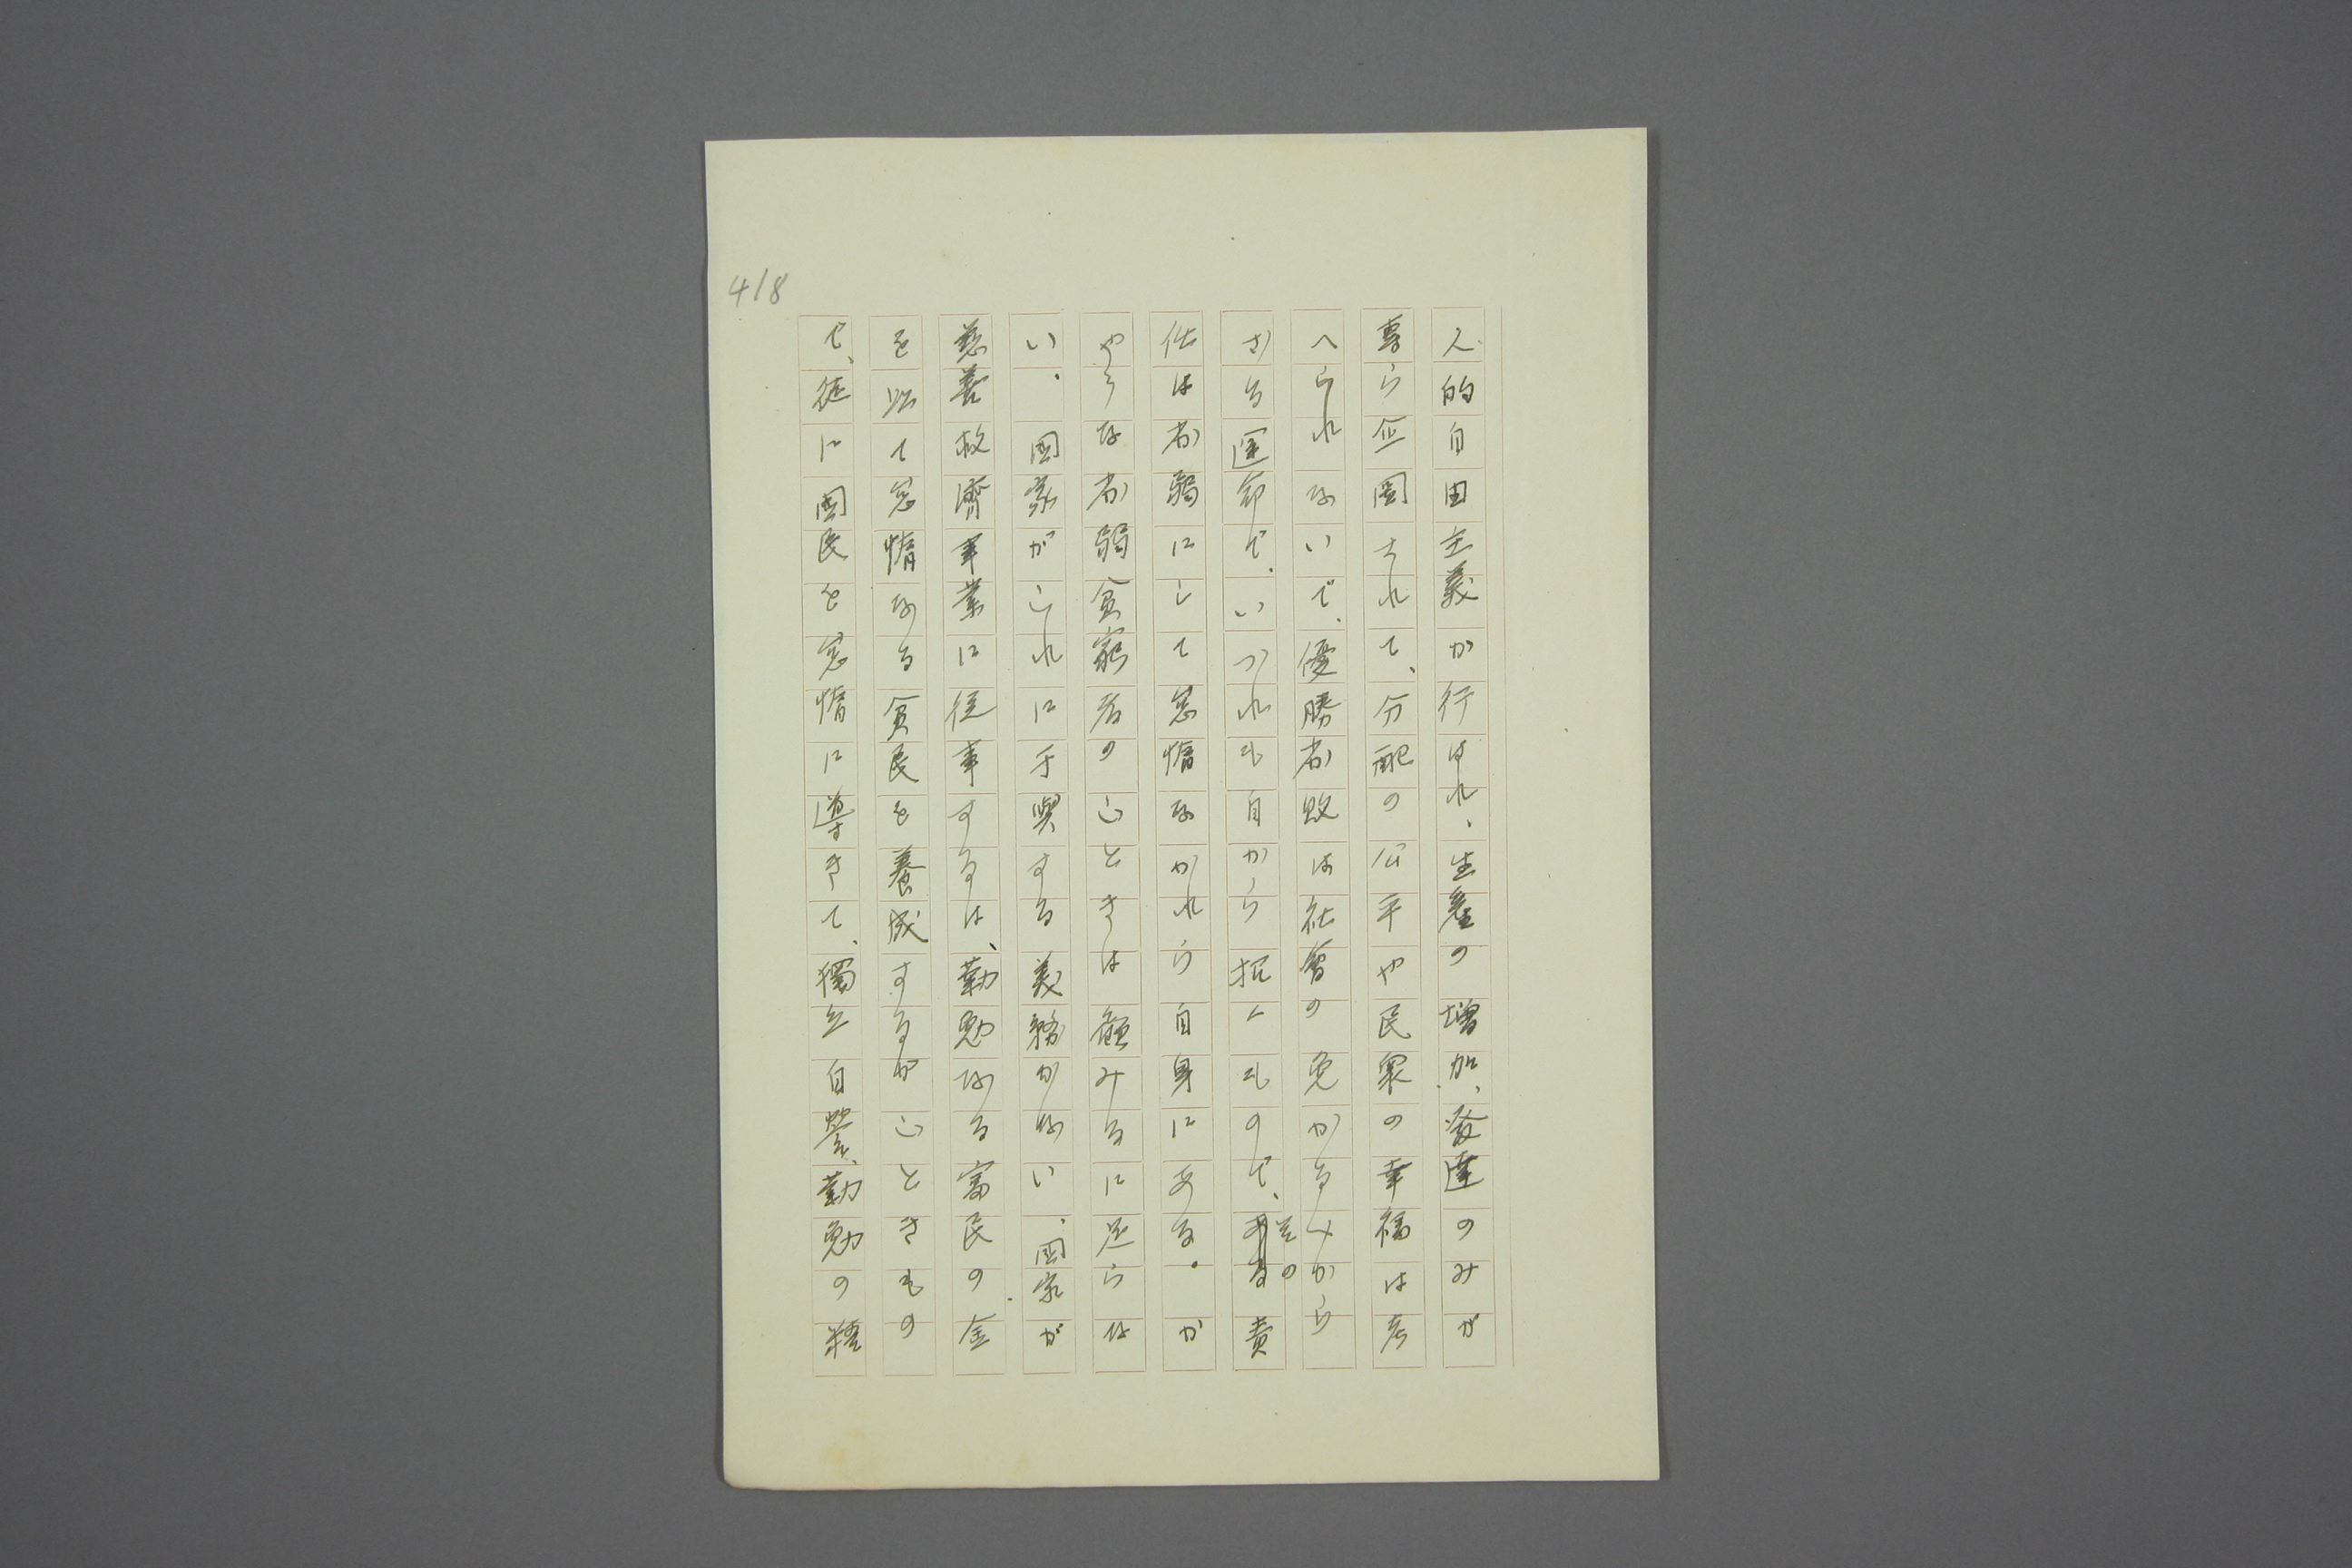 418
人的自由主義が行はれ、生產の增加、發達のみが
專ら企圖されて、分配の公平や民衆の幸福は考
へられないで、優勝劣敗は社會の免かるべから
さる運命で、いづれも自から招くもので、其の責
任は劣弱にして怠惰なかれら自身にある。か
やうな劣弱貧窮者のごときは顧みるに足らな
い。國家がこれに干與する義務がない、國家が
慈善救濟事業に從事するは、勤勉なる富民の金
を以て怠惰なる貧民を養成するがごときもの
で、徒に國民を怠惰に導きて、獨立自營、勤勉の精